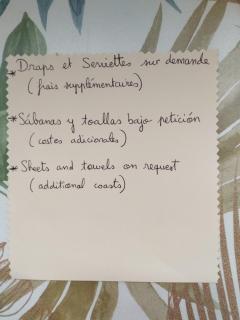 * Draps et Serviettes sur demande
(frais supplémentaires)
* Sábanas y toallas bajo petición
(costes adicionales)
* Sheets and towels on request
(additional coasts)